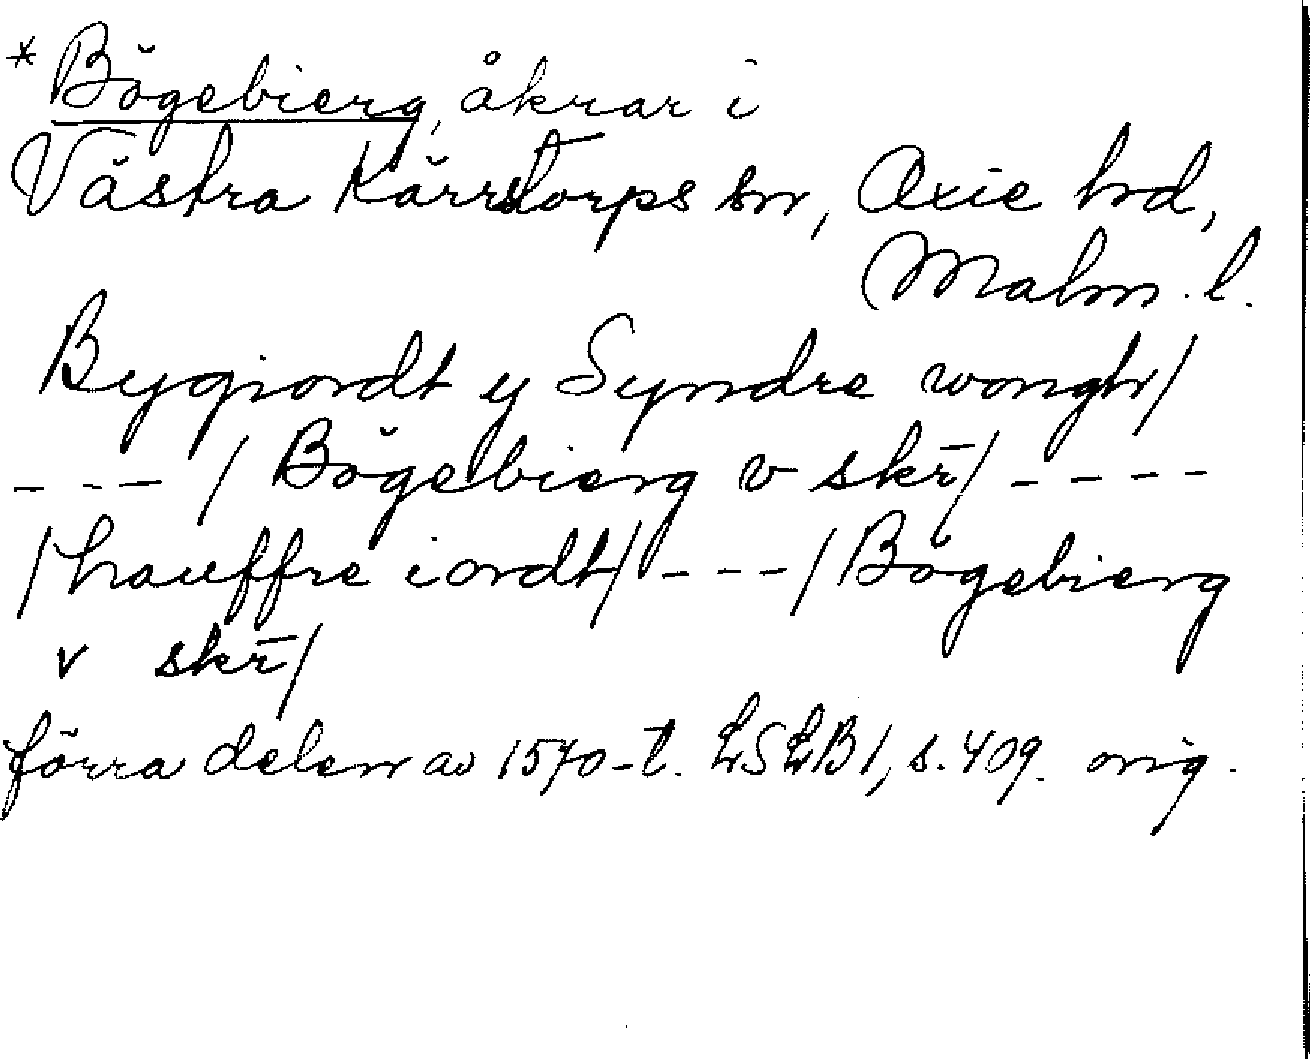 *Bögebierg, åkrar i
Västra Kärrstorps sn, Oxie hd,
Malm. l.
Bygiordt y Syndre wongh/
- - - / Bögebierg v skr̄/ - - - -
/hauffre iordt/ - - - / Bögebierg
v skr̄/
förra delen av 1570-t. LSLB1, s. 409. orig.